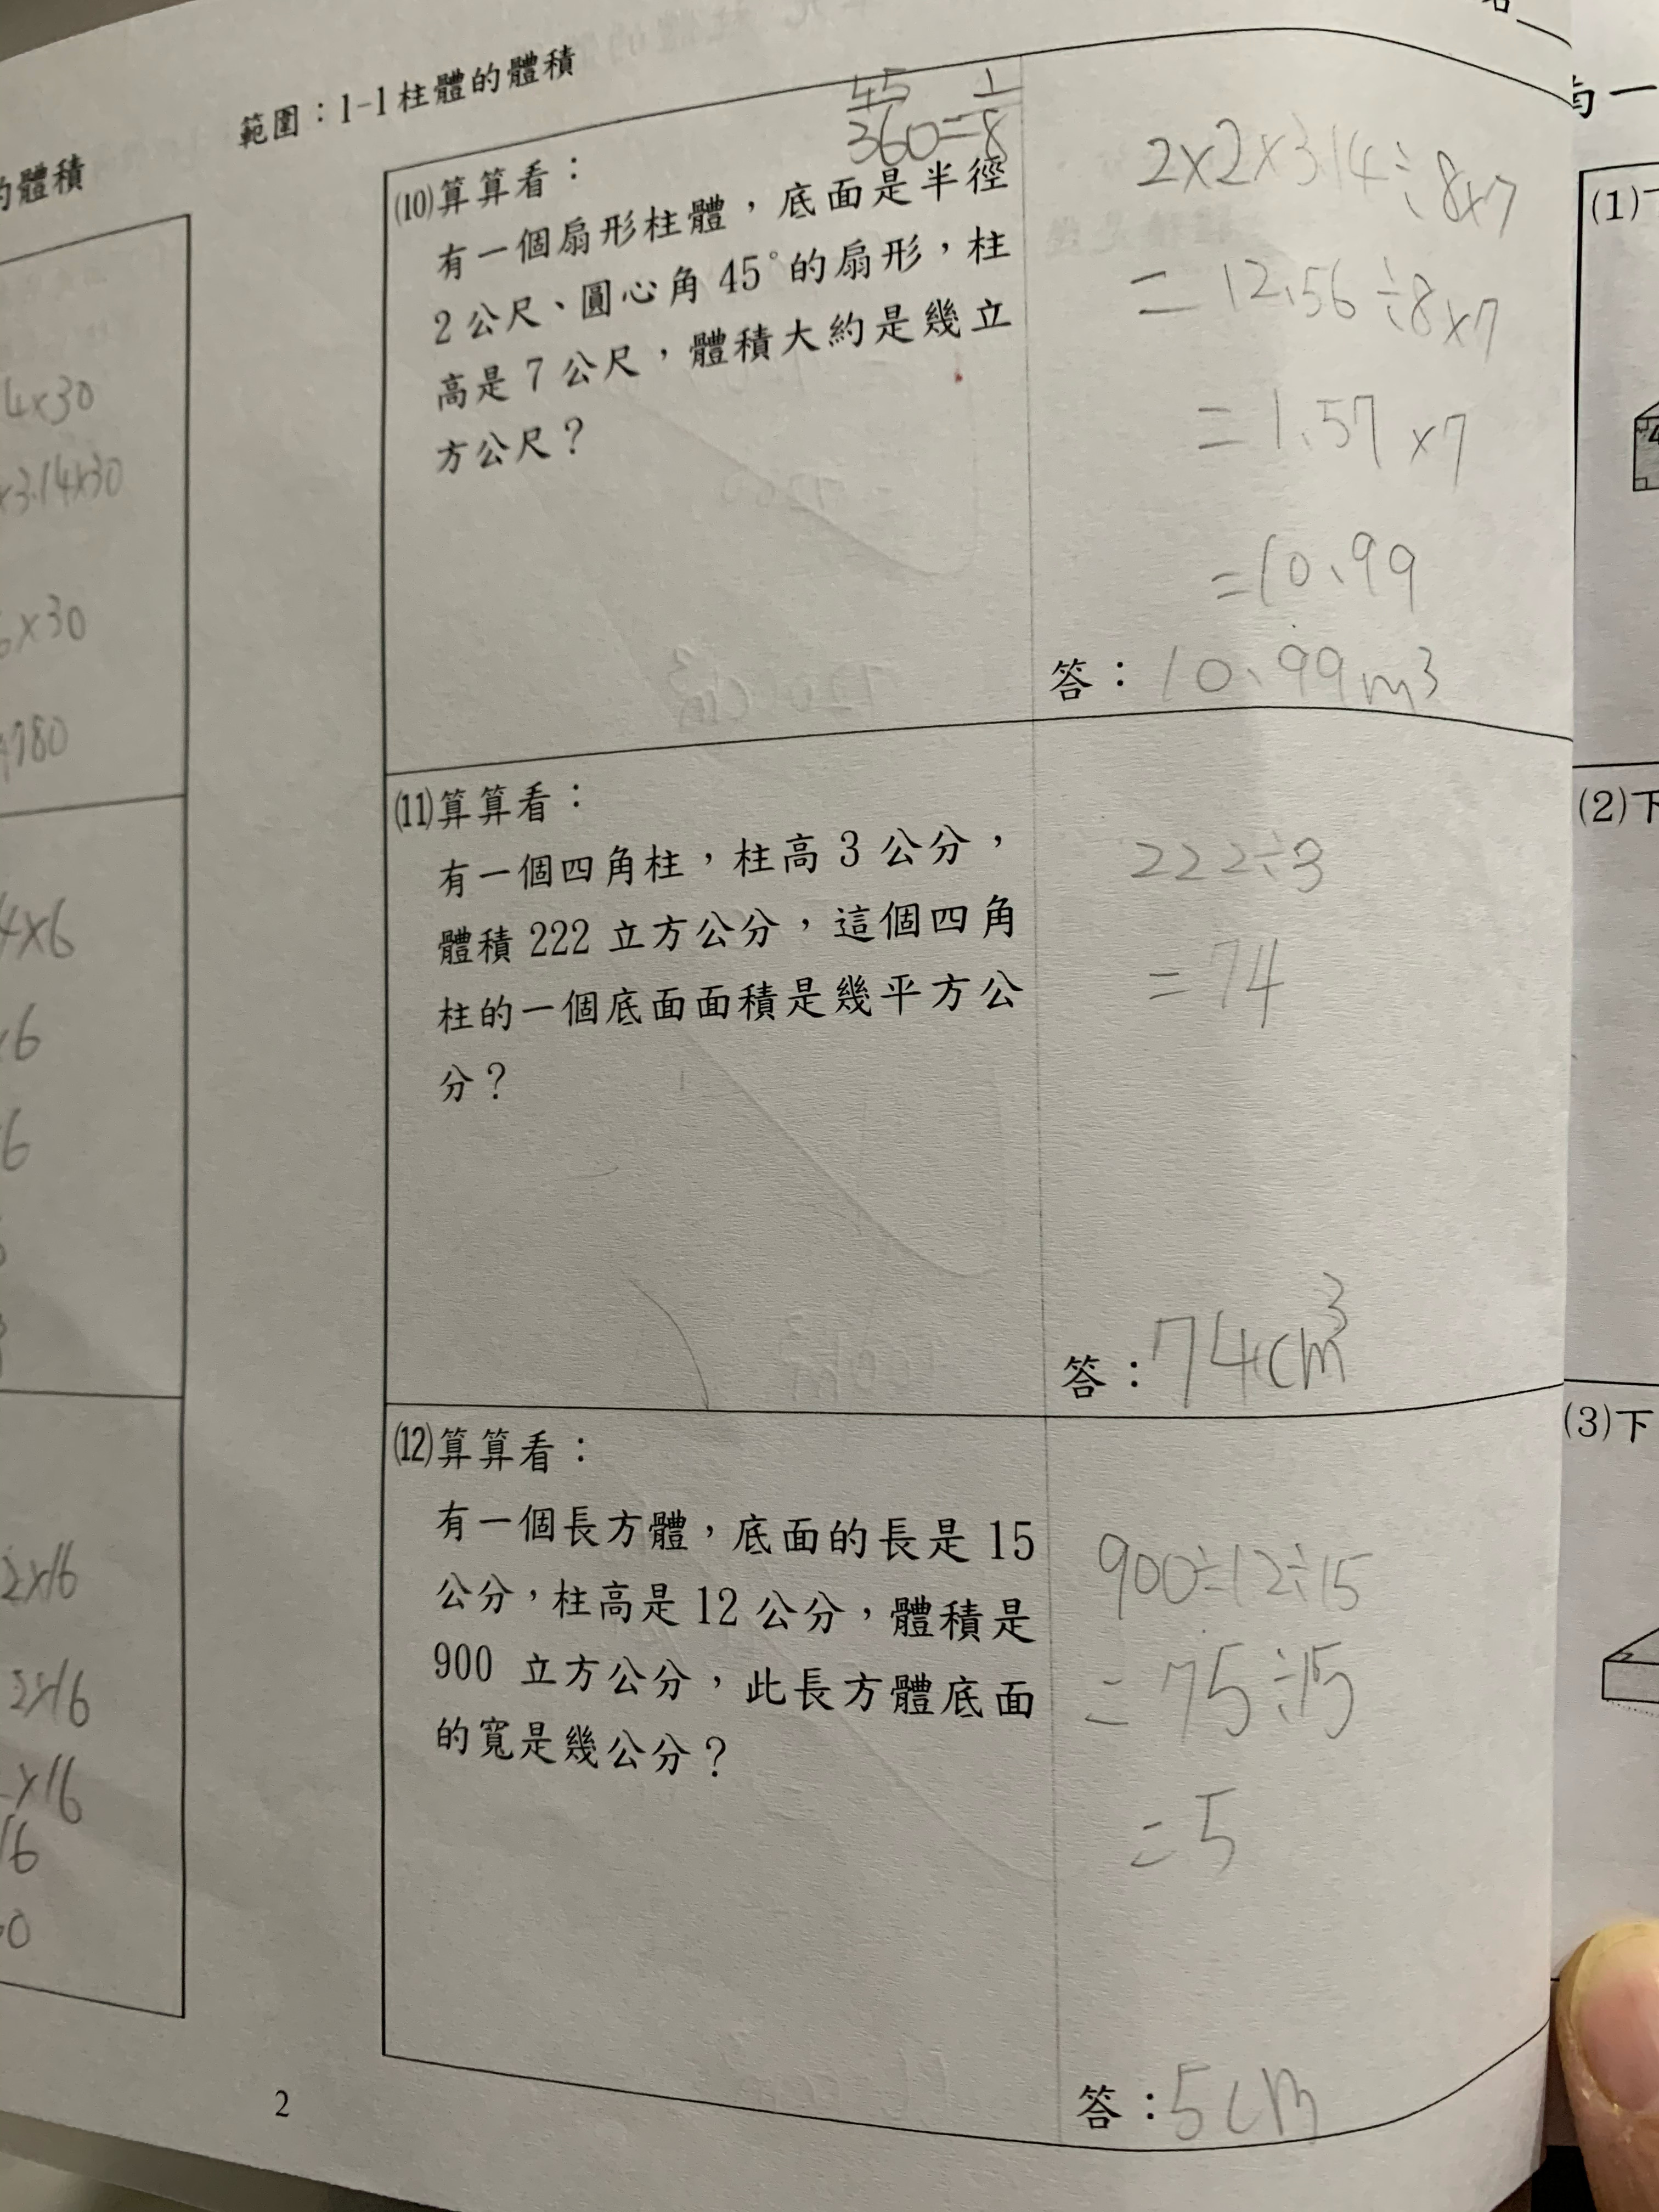 範圍：1-1柱體的體積
的體積
4×30
×3.14×30
×30
780
4×6
×6
6
2×16
2×16
×16
16
0
45/360=1/8
(10)算算看：
有一個扇形柱體，底面是半徑
2公尺、圓心角45°的扇形，柱
高是7公尺，體積大約是幾立
方公尺？
2×2×3.14÷8×7
=12.56÷8×7
=1.57×7
=10.99
答：10.99m³
(11)算算看：
有一個四角柱，柱高3公分，
體積222立方公分，這個四角
柱的一個底面面積是幾平方公
分？
222÷3
=74
答：74cm³
(12)算算看：
有一個長方體，底面的長是15
公分，柱高是12公分，體積是
900 立方公分，此長方體底面
的寬是幾公分？
900÷12÷15
=75÷15
=5
答：5cm
2
(1)下
(2)下
(3)下